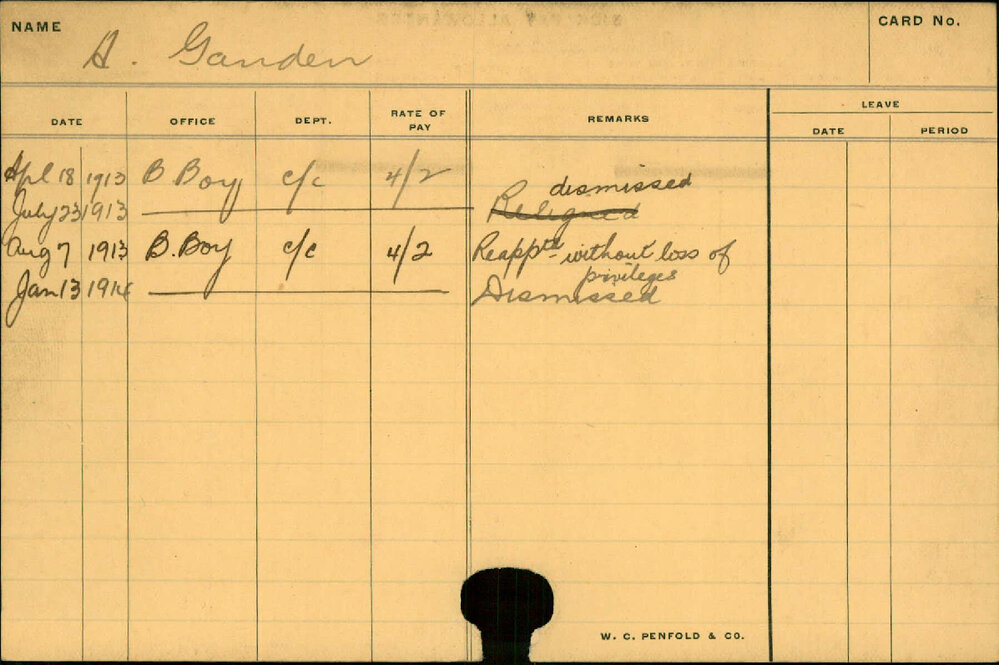 NAME
CARD No.
H. Ganden
LEAVE
DATE OFFICE DEPT. RATE OF PAY REMARKS DATE PERIOD
Apl 18 1913 B. Boy c/c 4/2
dismissed
July 23 1913 Resigned
Aug 7 1913 B. Boy c/c 4/2 Reapptd without loss of
privileges
Jan 13 1914 Dismissed
W. C. PENFOLD & CO.